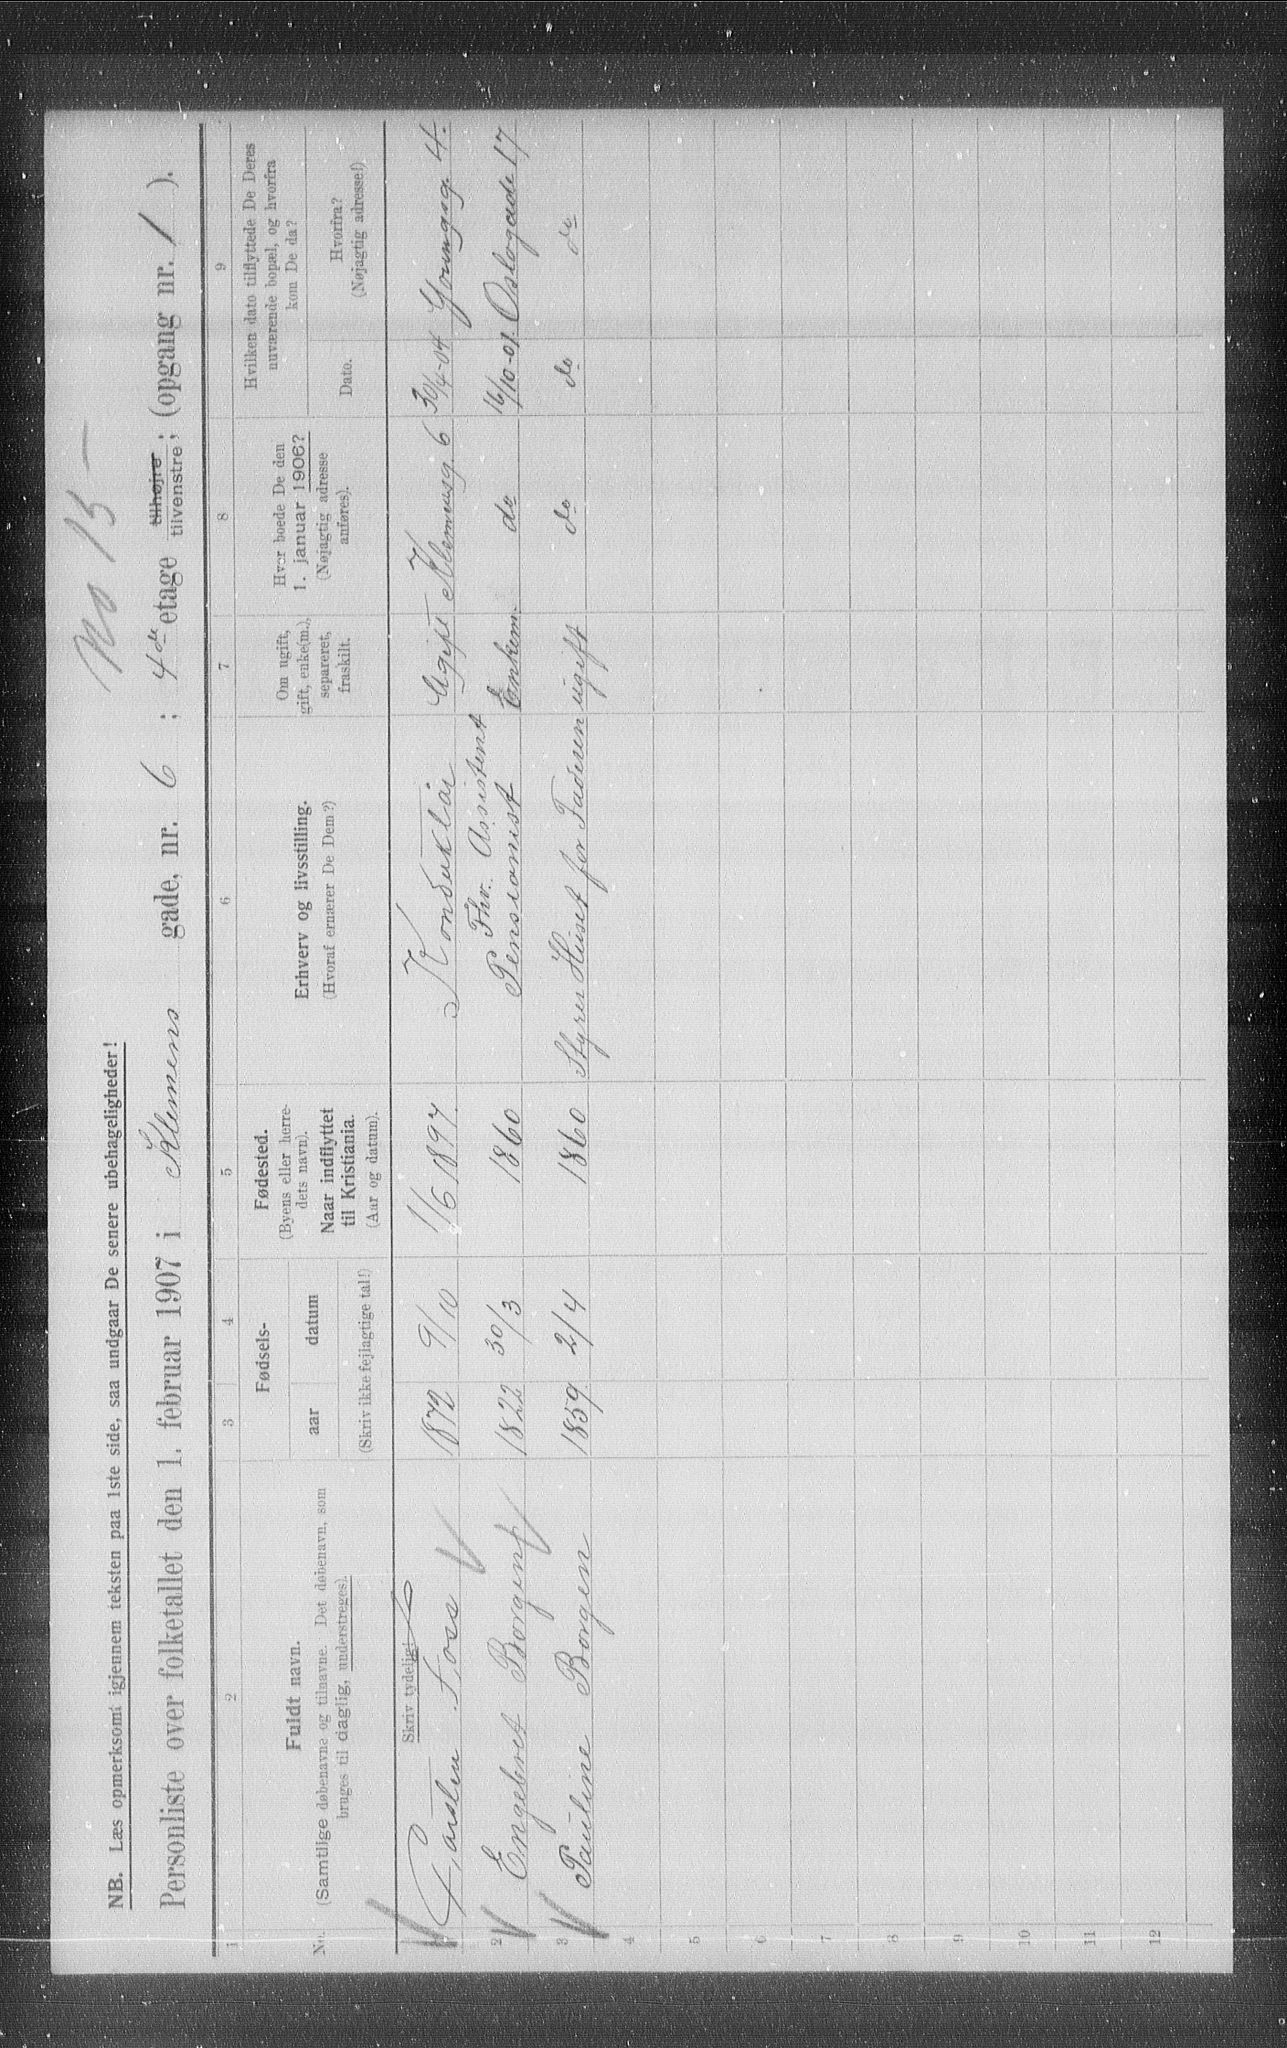 No 15 –
NB. Læs opmerksomt igjennem teksten paa 1ste side, saa undgaar De senere ubehageligheder!
Personliste over folketallet den 1. februar 1907 i Klemens gade, nr. 6 ; 4de etage tilhøjre ; tilvenstre ; (opgang nr. 1 ).
1 2 3 4 5 6 7 8 9
No.
Fuldt navn.
(Samtlige døbenavne og tilnavne. Det døbenavn, som
bruges til daglig, understreges).
Fødsels-
aar datum
(Skriv ikke fejlagtige tal!)
Fødested.
(Byens eller herre-
dets navn).
Naar indflyttet
til Kristiania.
(Aar og datum).
Erhverv og livsstilling.
(Hvoraf ernærer De Dem?)
Om ugift,
gift, enke(m.),
separeret,
fraskilt.
Hvor boede De den
1. januar 1906?
(Nøjagtig adresse
anføres).
Hvilken dato tilflyttede De Deres
nuværende bopæl, og hvorfra
kom De da?
Dato.
Hvorfra?
(Nøjagtig adresse!)
Skriv tydeligt
1 Carsten Foss 1872 9/10 1/6 1897. Konduktør Ugift Klemensg. 6 30/4-04 Youngsg. 4.
Fhv. Assistent
2 Engebret Borgen 1822 30/3 1860 Pensionist Enkem. do 16/10-01. Oslogade 17
3 Pauline Borgen 1859 2/4 1860 Styrer Huset for Faderen ugift do do do
4
5
6
7
8
9
10
11
12